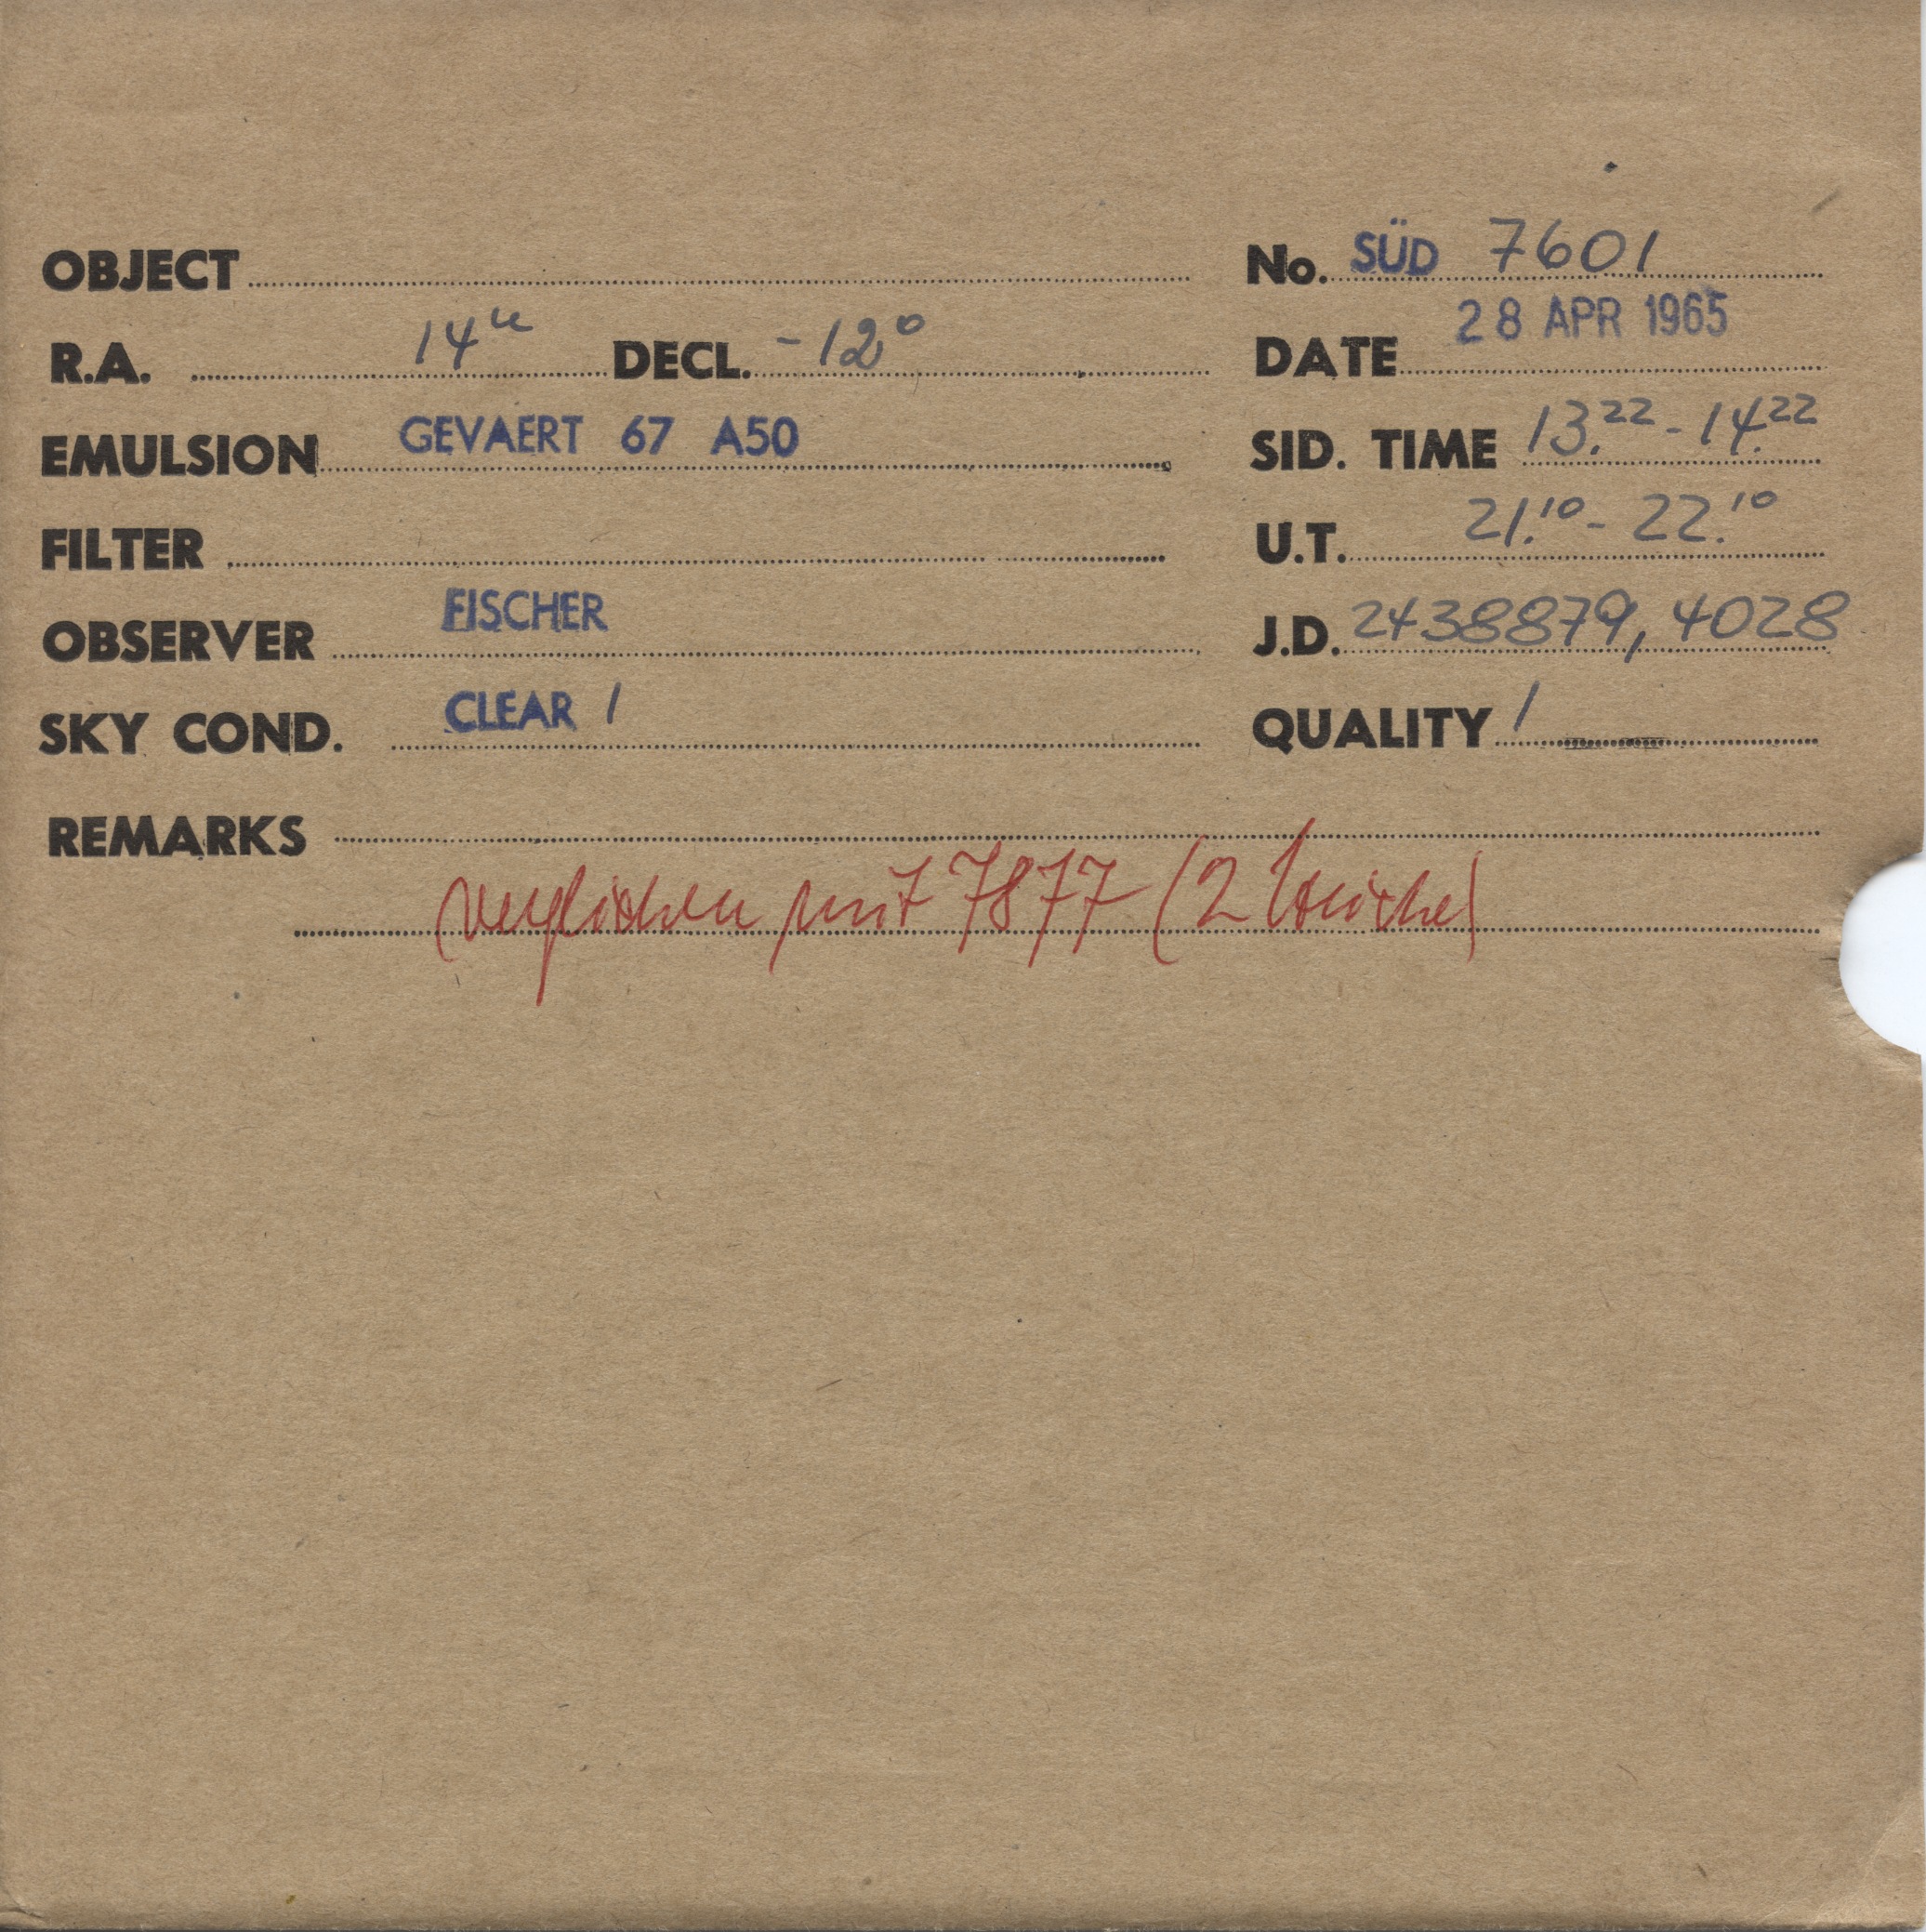 OBJECT
No. SÜD 7601
R.A. 14h DECL. -12°
DATE 28 APR 1965
EMULSION GEVAERT 67 A50
SID. TIME 13.22 - 14.22
FILTER
U.T. 21.10 - 22.10
OBSERVER FISCHER
J.D. 2438879,4028
SKY COND. CLEAR 1
QUALITY 1
REMARKS
verglichen mit 7877 (2